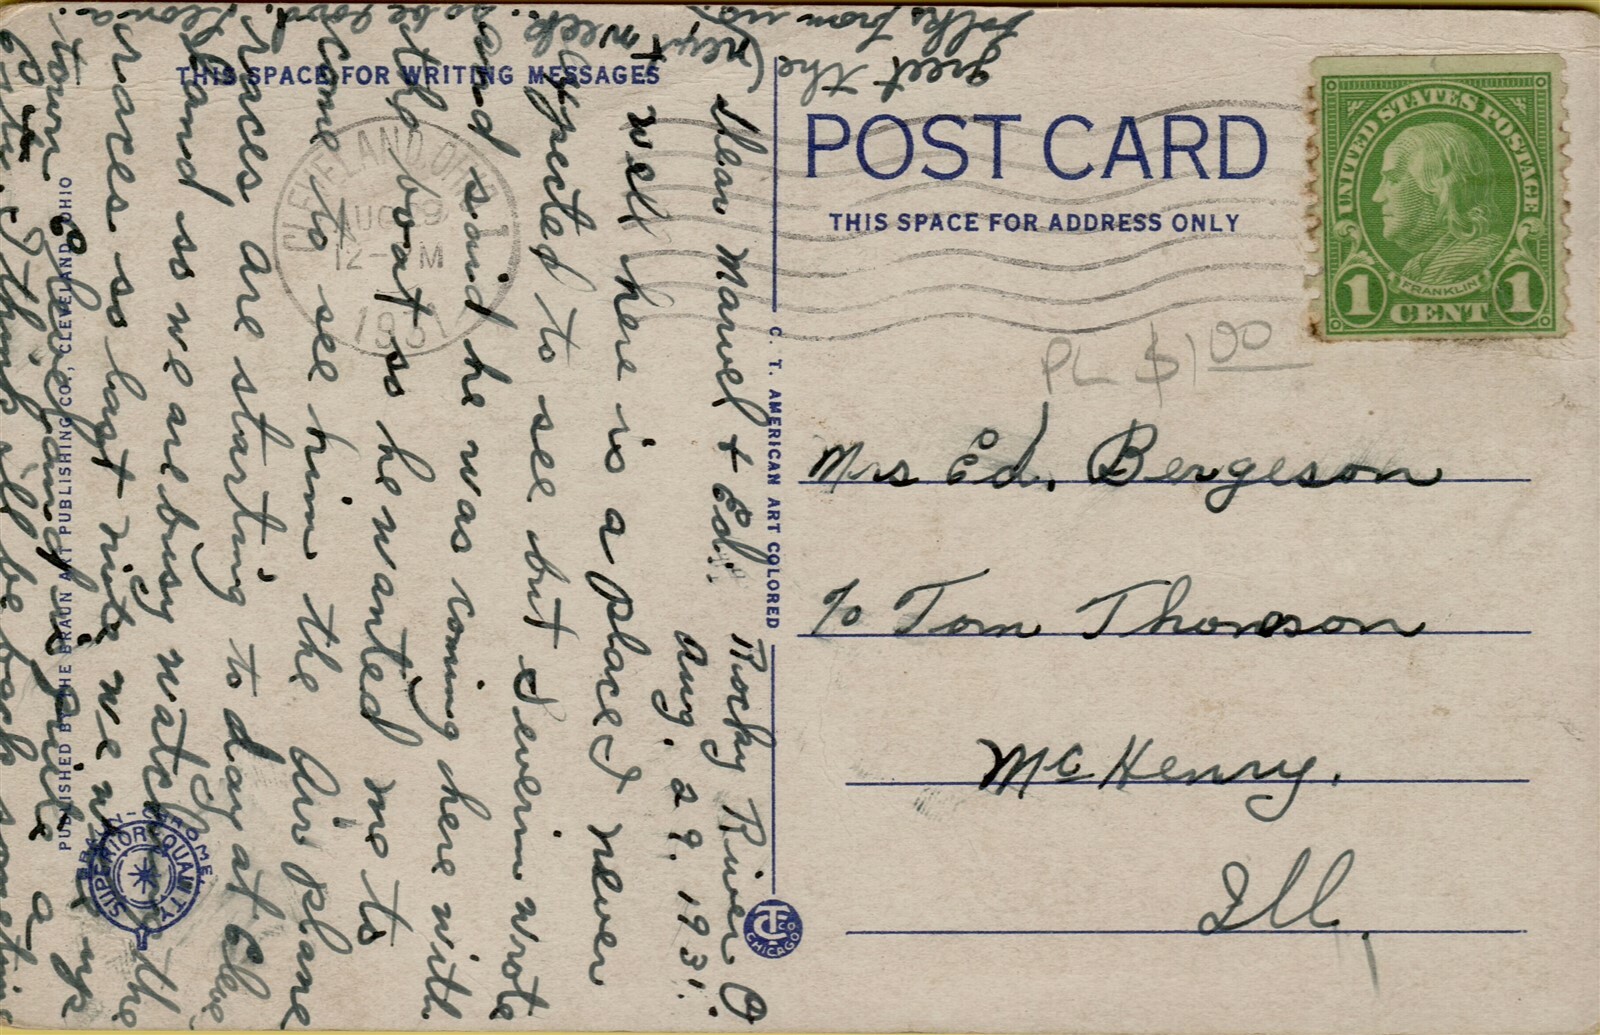 THIS SPACE FOR WRITING MESSAGES
POST CARD
THIS SPACE FOR ADDRESS ONLY
UNITED STATES POSTAGE
FRANKLIN
1 CENT 1
CLEVELAND, OHIO
AUG 29
12- M
1931
PL $1.00
C. T. AMERICAN ART COLORED
C.T. CO CHICAGO
PUBLISHED BY THE BRAUN ART PUBLISHING CO., CLEVELAND, OHIO
SUPERIOR QUALITY
Mrs Ed. Bergeson
℅ Tom Thomson
McHenry.
Ill.
Rocky River O
Aug. 29. 1931.
Dear Marvel + Ed.
Well here is a place I never
expected to see but Severin wrote
and said he was coming here with
the boat so he wanted me to
come to see him the Air plane
races are starting to day at Cleve
land so we are busy watching the
races. so last nite we were up
town Cleveland is quite a
city. I think I'll be back sometime
next week
(next
so be good.
Leona.
greet the
folks from us.